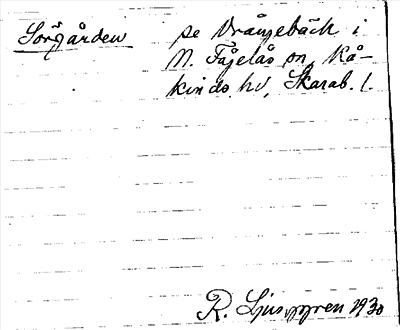 Sörgården se Vrångebäck i
N. Fågelås sn, Kå-
kinds hd, Skarab. l.
R. Ljunggren 1930